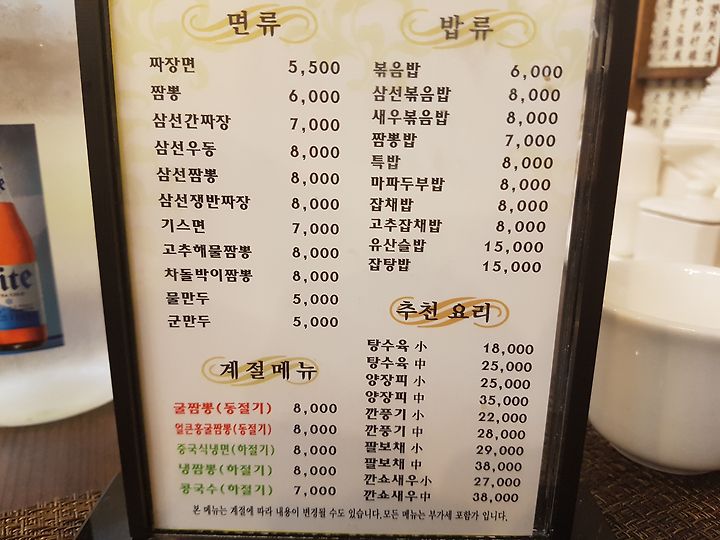 면류
짜장면 5,500
짬뽕 6,000
삼선간짜장 7,000
삼선우동 8,000
삼선짬뽕 8,000
삼선쟁반짜장 8,000
기스면 7,000
고추해물짬뽕 8,000
차돌박이짬뽕 8,000
물만두 5,000
군만두 5,000
계절메뉴
굴짬뽕(동절기) 8,000
얼큰홍굴짬뽕(동절기) 8,000
중국식냉면(하절기) 8,000
냉짬뽕(하절기) 8,000
콩국수(하절기) 7,000
밥류
볶음밥 6,000
삼선볶음밥 8,000
새우볶음밥 8,000
짬뽕밥 7,000
특밥 8,000
마파두부밥 8,000
잡채밥 8,000
고추잡채밥 8,000
유산슬밥 15,000
잡탕밥 15,000
추천 요리
탕수육 小 18,000
탕수육 中 25,000
양장피 小 25,000
양장피 中 35,000
깐풍기 小 22,000
깐풍기 中 28,000
팔보채 小 29,000
팔보채 中 38,000
깐쇼새우小 27,000
깐쇼새우中 38,000
본 메뉴는 계절에 따라 내용이 변경될 수도 있습니다.모든 메뉴는 부가세 포함가 입니다.
ite